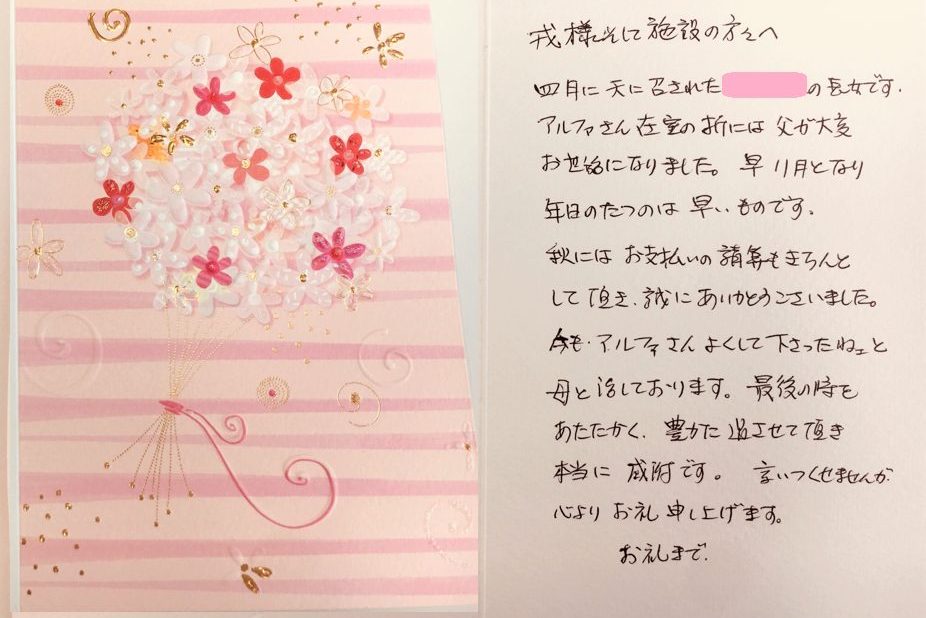 戎様そして施設の方々へ
四月に天に召された の長女です.
アルファさん在室の折には父が大変
お世話になりました。早11月となり
年日のたつのは早いものです.
秋にはお支払いの請算もきちんと
して頂き、誠にありがとうございました。
今も、アルファさんよくして下さったねェと
母と話しております。最後の時を
あたたかく、豊かに過させて頂き
本当に感謝です。言いつくせませんが
心よりお礼申し上げます。
お礼まで.